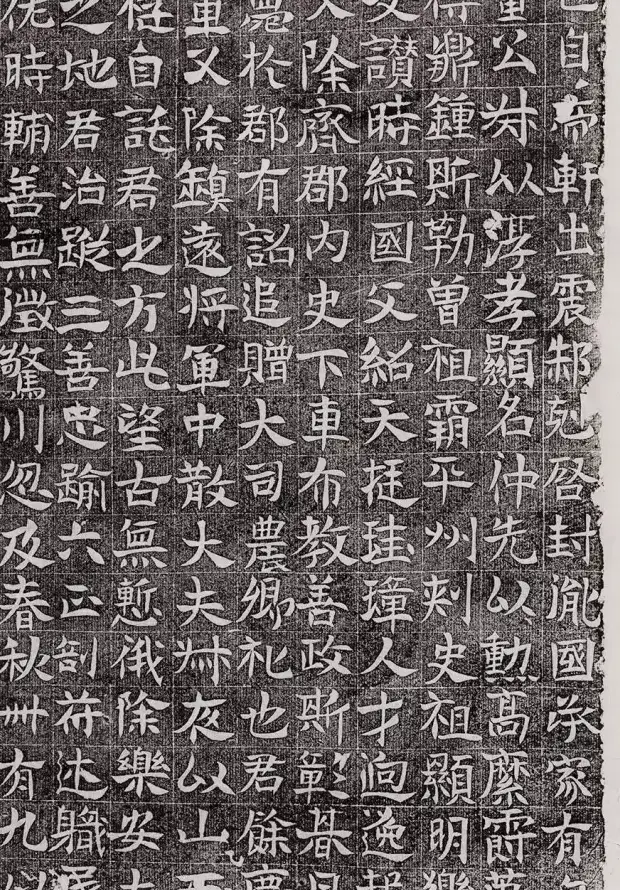 自帝軒出震邾克啓封胤國承家有
公叔以淳孝顯名沖先以勳高縻爵
鼎鍾斯勒曾祖霸平州刾史祖顯明
讃時經國父紹天挺珪璋人才逈逸
除齊郡內史下車布教善政斯範朞月
於郡有詔追贈大司農卿礼也君餘
軍又除鎮遠將軍中散大夫叔灰以山
自託君之方此望古無慙俄除樂安
之地君治蹤三善忠踰六正剖苻述職
時輔善無徵驚川忽及春秋卌有九